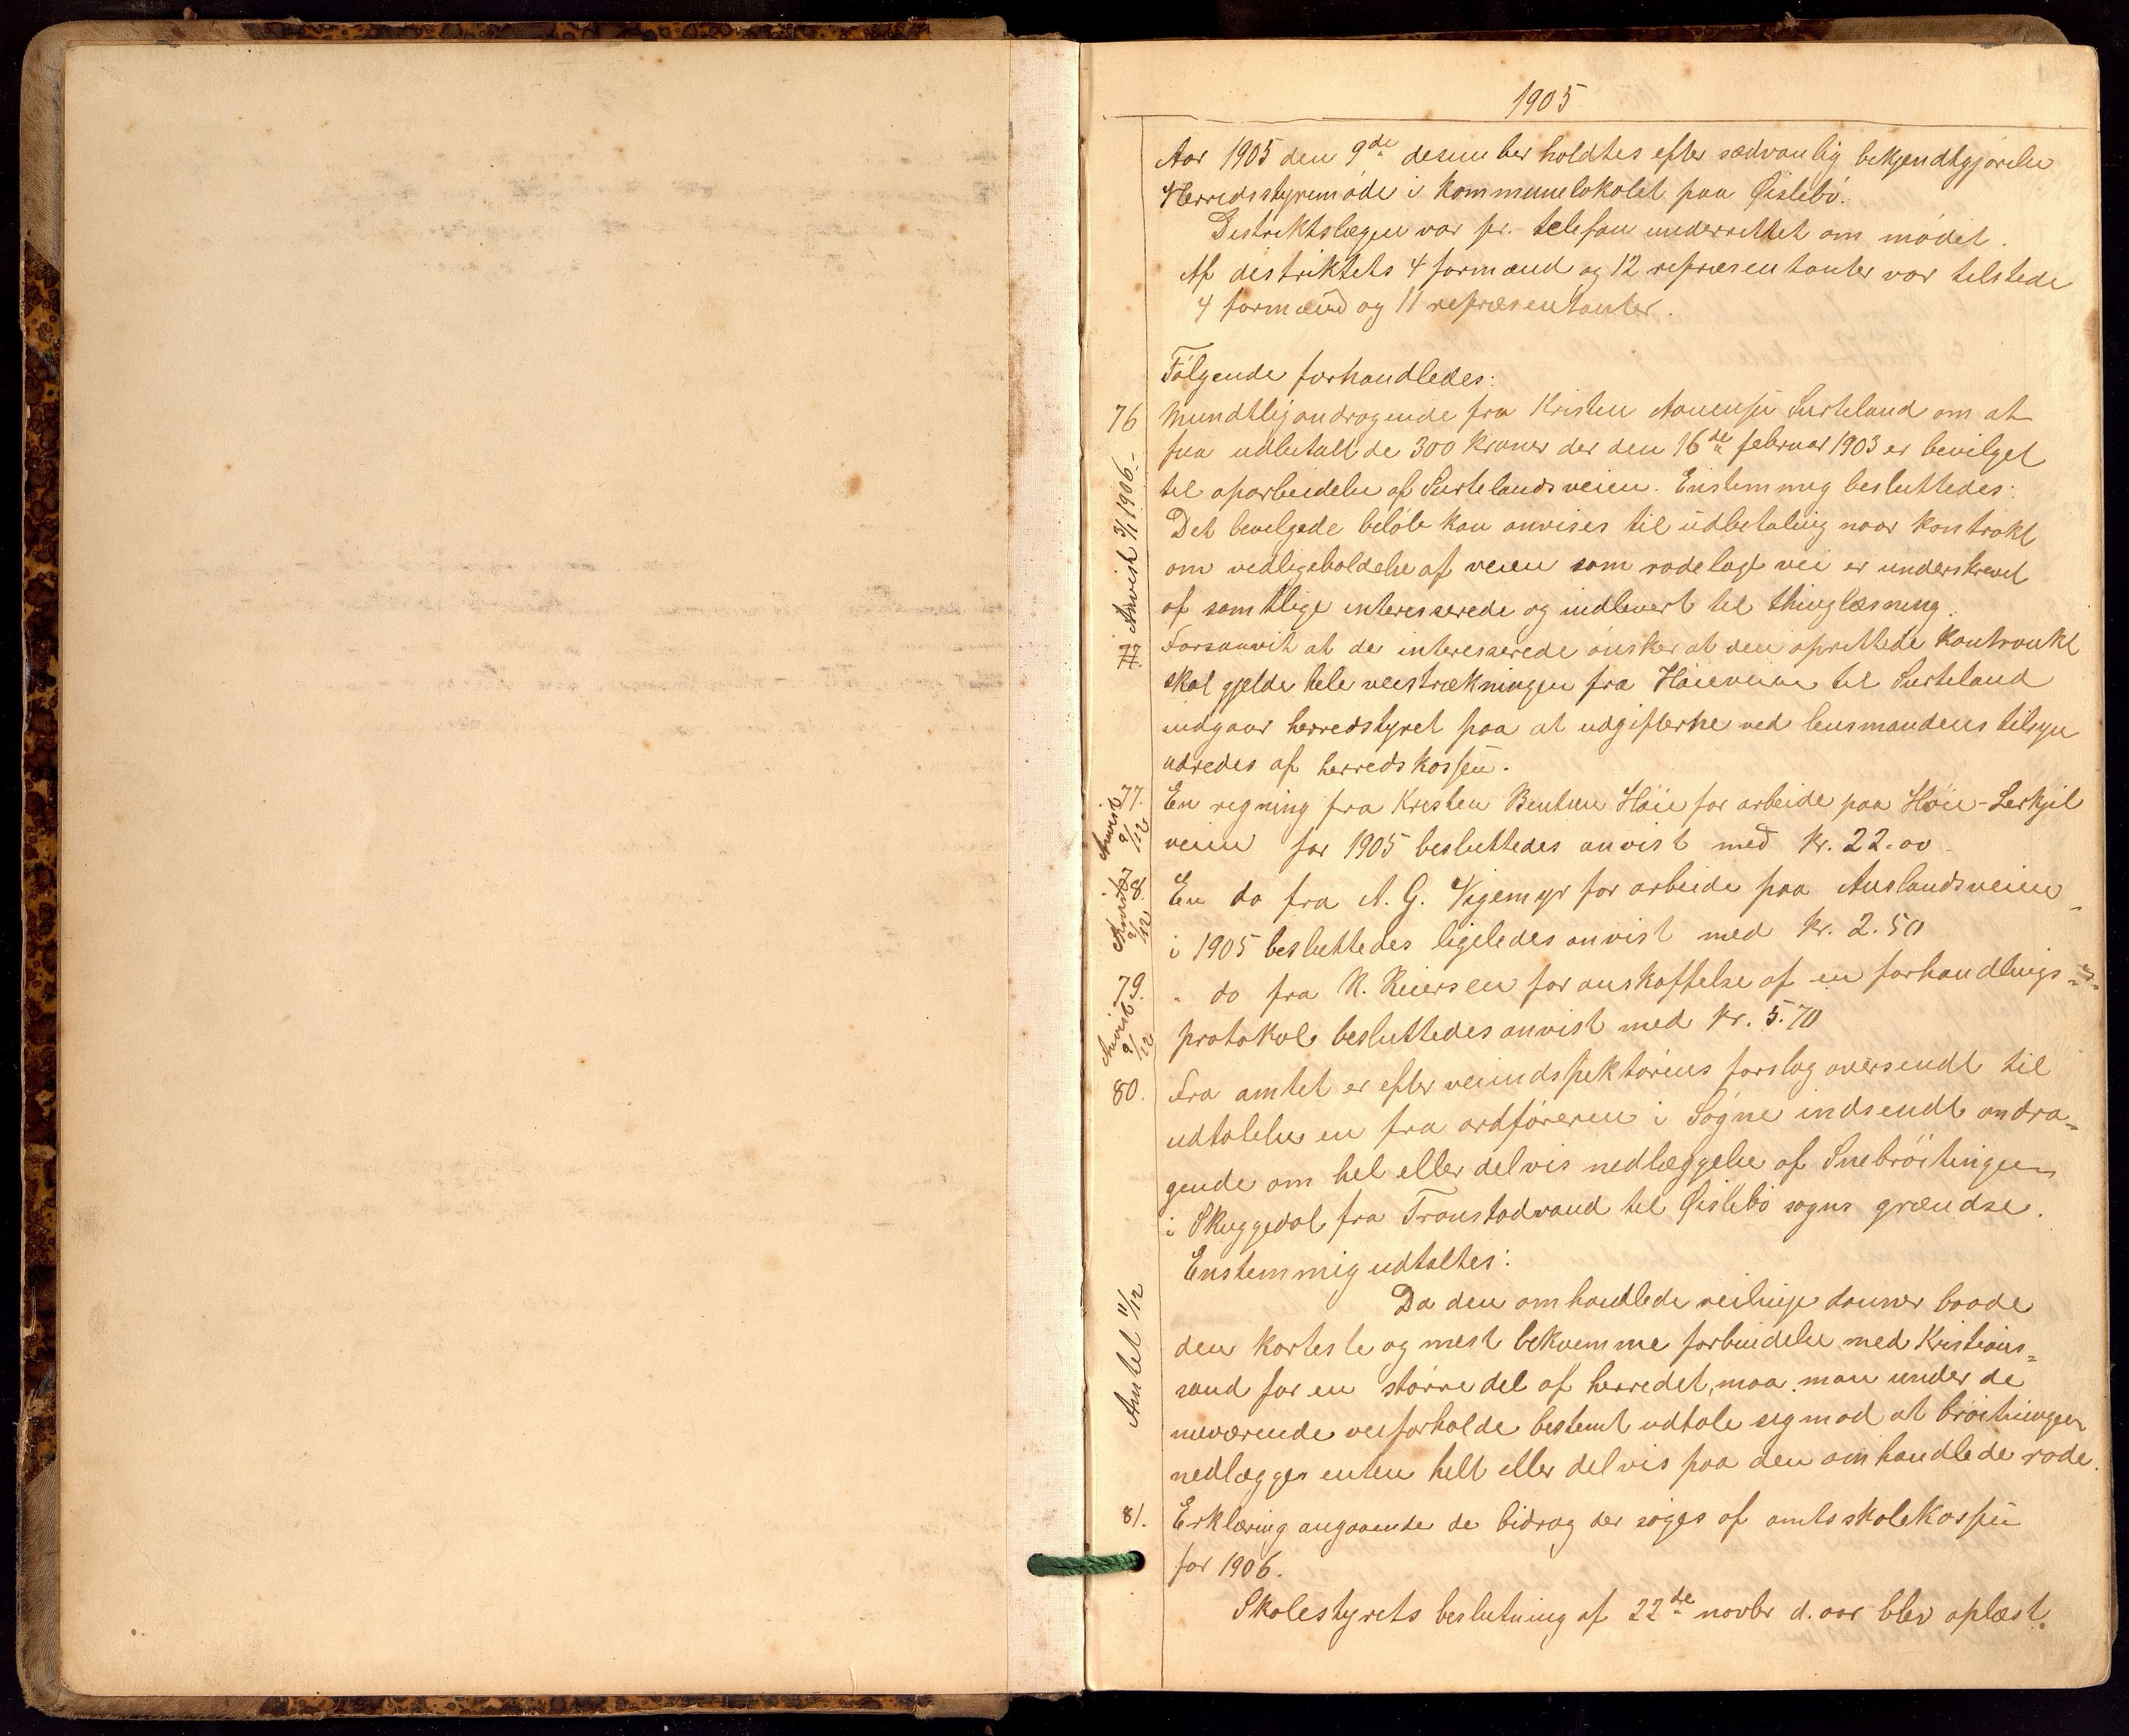 1905
Aar 1905 den 9de desember holdtes efter sædvanlig bekjendtgjörelse
Herredsstyremöde i kommunelokalet paa Øislebö.
Distriktslægen var pr. telefon underrettet om mödet.
Af distriktets 4 formænd og 12 repræsentanter var tilstede
4 formænd og 11 repræsentanter.
Fölgende forhandledes:
76 Mundtlig andragende fra Kristen Aanensen Surteland om at
faa udbetalt de 300 kroner der den 16de februar 1903 er bevilget
til oparbeidelse af Surtelandsveien. Enstemmig besluttedes:
Det bevilgede belöb kan anvises til udbetaling naar kontrakt
om vedligeholdelse af veien som rodelagt vei er underskrevet
af samtlige interesserede og indlevert til thinglæsning.
Forsaavit at de interesserede önsker at den oprettede kontrakt
skal gjelde hele veistrækningen fra Höieveien til Surteland
indgaar herredstyret paa at udgifterne ved lensmandens tilsyn
udredes af herredskassen.
Anvist 3/1 1906.
77. En regning fra Kristen Bentsen Höie for arbeide paa Höie-Lerkjil
veien for 1905 besluttedes anvist med kr. 22.00
Anvist 9/12
78. En do fra A. G. Vigemyr for arbeide paa Auslandsveien
i 1905 besluttedes ligeledes anvist med kr. 2.50
Anvist 9/12
79. " do fra N. Reiersen for anskaffelse af en forhandlings=
protokol besluttedes anvist med kr. 5.70
Anvist 9/12
80. Fra amtet er efter veiindspektörens forslag oversendt til
udtalelse en fra ordföreren i Sögne indsendt andra=
gende om hel eller delvis nedlæggelse af Snebröitingen
i Skuggedal fra Tronstadvand til Øislebö sogns grændse.
Enstemmig udtaltes:
Da den omhandlede veilinje danner baade
den korteste og mest bekvemme forbindelse med Kristians=
sand for en större del af herredet, maa man under de
nuværende veiforholde bestemt udtale sig mod at bröitningen
nedlægges enten helt eller delvis paa den omhandlede rode.
Amtet 11/12
81. Erklæring angaaende de bidrag der söges af amtsskolekassen
for 1906.
Skolestyrets beslutning af 22de novbr d. aar blev oplæst.